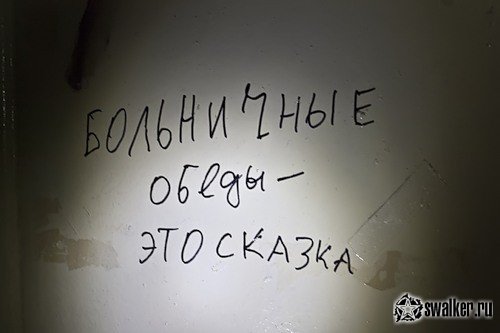 БОЛЬНИЧНЫЕ
обеды –
ЭТО СКАЗКА
swalker.ru